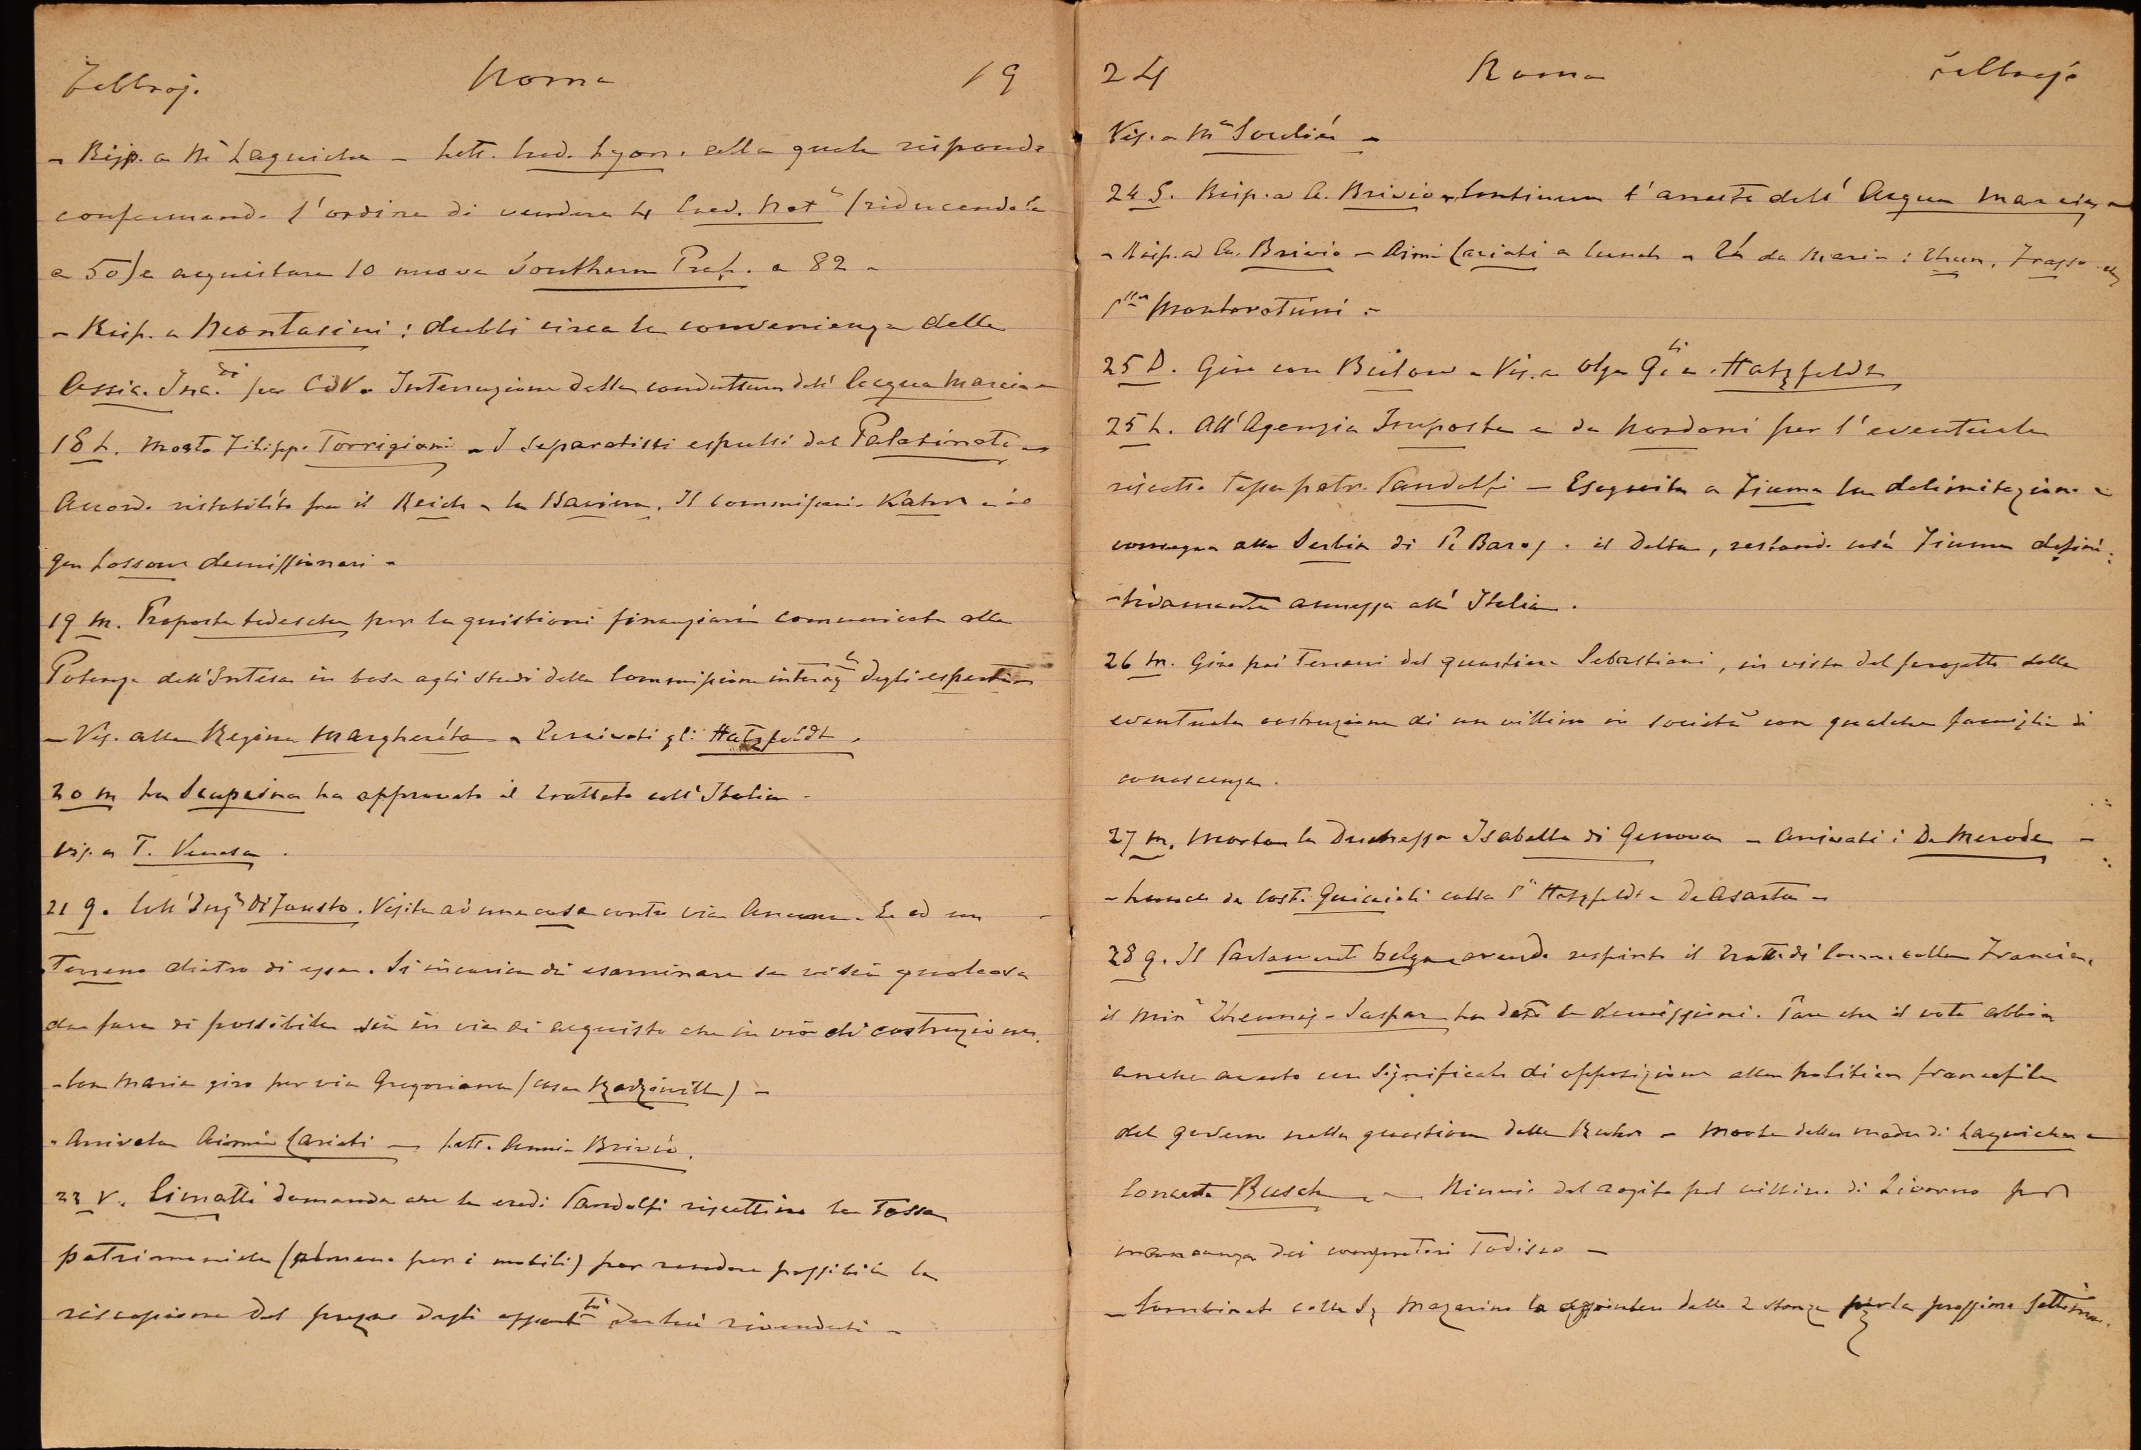 Febbraj. Roma 19
- Risp. a Mr Laguiche - Lett. Cred. Lyon. alla quale rispondo
confermando l'ordine di vendere le Cred. Nat (riducendole
a 50) e acquistare 10 nuove Southern Pref. a 82 -
- Risp. a Montasini: dubbi circa la convenienza delle
Assic. Inc.di per CdV. Interruzione della conduttura dell'Acqua Marcia -
18 L. Morto Filippo Torrigiani - I separatisti espulsi dal Palatinato -
Accordo ristabilito fra il Reich e la Baviera. Il commissario Kahr e il
gen Lossow demissionari -
19 M. Proposte tedesche per le quistioni finanziarie comunicate alle
Potenze dell'Intesa in base agli studi della Commissione interaza degli esperti -
- Vis. alla Regina Margherita - Arrivati gli Hatzfeldt.
20 M La Scupcina ha approvato il trattato coll'Italia.
Vis. a T. Venosa.
21 G. Coll'Inge Di Fausto. Visita ad una casa contro via Ancona. E ad un
Terreno dietro di essa. Si incarica di esaminare se vi sia qualcosa
da fare di possibile sia in via di acquisto che in via di costruzione.
- Con Maria giro per via Gregoriana (casa Radziwill) -
- Arrivata Aimie Cariati - Lett. Annie Brivio.
22 V. Cimatti domanda che le eredi Pandolfi riscattino la Tassa
patrimoniale (almeno per i mobili) per rendere possibile la
riscossione del prezzo degli oggetti da lui rivenduti -
24 Roma Febbrajo
Vis. a Me Soulier -
24 S. Risp. a A. Brivio - Continua l'arresto dell'Acqua Marcia -
- Risp. ad An. Brivio - Aimie Cariati a lunch - Thé da Maria: Thun, Frasso etc
Pssa Monteroduni -
25 D. Giro con Bülow - Vis. a Olga G. e Hatzfeldt
25 L. All'Agenzia Imposte e da Nardoni per l'eventuale
riscatto Tassa patr. Pandolfi - Eseguita a Fiume la delimitazione e
consegna alla Serbia di Pto Baros e il Delta, restando così Fiume defini:
-tivamente annessa all'Italia.
26 M. Giro pei Terreni del quartiere Sebastiani, in vista del progetto della
eventuale costruzione di un villino in società con qualche famiglia di
conoscenza.
27 M. Morta la Duchessa Isabella di Genova - Arrivati i De Merode -
- Lunch da Cost. Guiccioli colla Pssa Hatzfeldt e De Asarta -
28 G. Il Parlamento belga avendo respinto il Tratt. di Comm. colla Francia,
il Minro Theunis-Jaspar ha dato le demissioni. Pare che il voto abbia
anche avuto un significato di opposizione alla politica francofila
del governo nella questione della Ruhr - Morte della madre di Laguiche -
Concerto Busch - - Rinvio del rogito pel villino di Livorno per
mancanza dei compratori Todisco -
- Combinato colla Sa Mazarino la aggiunta delle 2 stanze per la prossima settimana.